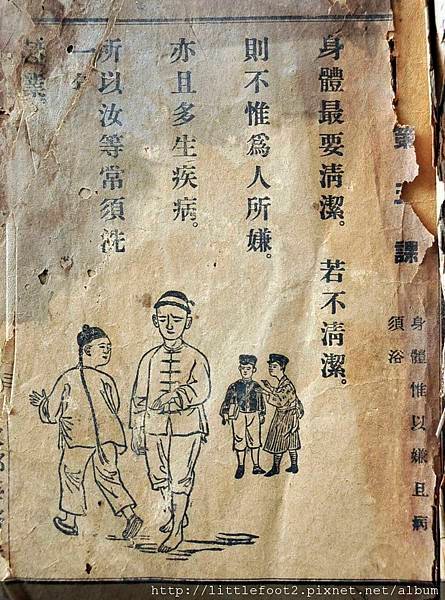 第五課
身體惟以嫌且病
須浴
身體最要清潔。 若不清潔。
則不惟爲人所嫌。
亦且多生疾病。
所以汝等常須洗
一
業
http://littlefoot2.pixnet.net/album